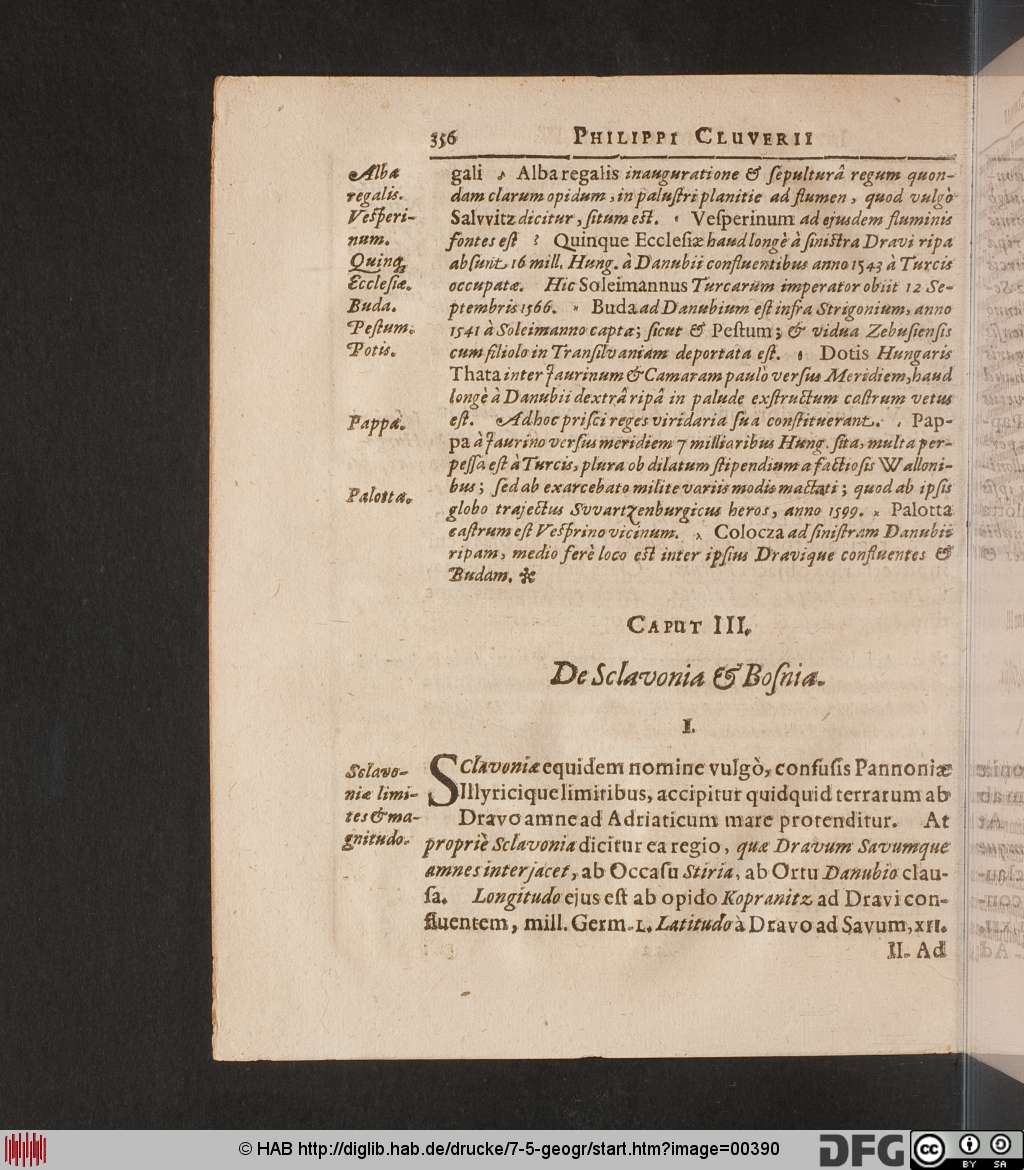 356 PHILIPPI CLUVERII
Albæ
regalis.
Veſperi-
num.
Quinq́
Eccleſiæ.
Buda.
Peſtum.
Potis.
Pappà.
Palotta.
gali Alba regalis inauguratione & ſepulturâ regum quon-
dam clarum opidum, in paluſtri planitie ad flumen, quod vulgò
Salvvitz dicitur, ſitum eſt. Veſperinum ad ejusdem fluminis
fontes eſt Quinque Eccleſiæ haud longè à ſiniſtra Dravi ripa
abſunt 16 mill. Hung. à Danubii confluentibus anno 1543 à Turcis
occupatæ. Hic Soleimannus Turcarum imperator obiit 12 Se-
ptembris 1566. Buda ad Danubium eſt infra Strigonium, anno
1541 à Soleimanno capta; ſicut & Peſtum; & vidua Zebuſienſis
cum filiolo in Tranſilvaniam deportata eſt. Dotis Hungaris
Thata inter Jaurinum & Camaram paulò verſus Meridiem, haud
longè à Danubii dextrâ ripâ in palude exſtructum caſtrum vetus
eſt. Ad hoc priſci reges viridaria ſua conſtituerant. Pap-
pa à Jaurino verſus meridiem 7 milliaribus Hung. ſita, multa per-
peſſa eſt à Turcis, plura ob dilatum ſtipendium a factioſis Walloni-
bus; ſed ab exarcebato milite variis modis mactati; quod ab ipſis
globo trajectus Svvartzenburgicus heros, anno 1599. Palotta
caſtrum eſt Veſprino vicinum. Colocza ad ſiniſtram Danubii
ripam, medio ferè loco eſt inter ipſius Dravique confluentes &
Budam.
CAPUT III.
De Sclavonia & Boſnia.
I.
Sclavo-
niæ limi-
tes & ma-
gnitudo.
SClavoniæ equidem nomine vulgò, confuſis Pannoniæ
Illyricique limitibus, accipitur quidquid terrarum ab
Dravo amne ad Adriaticum mare protenditur. At
propriè Sclavonia dicitur ea regio, quæ Dravum Savumque
amnes interjacet, ab Occaſu Stiria, ab Ortu Danubio clau-
ſa. Longitudo ejus eſt ab opido Kopranitz ad Dravi con-
fluentem, mill. Germ. L. Latitudo à Dravo ad Savum, XII.
II. Ad
© HAB http://diglib.hab.de/drucke/7-5-geogr/start.htm?image=00390
DFG
cc BY SA